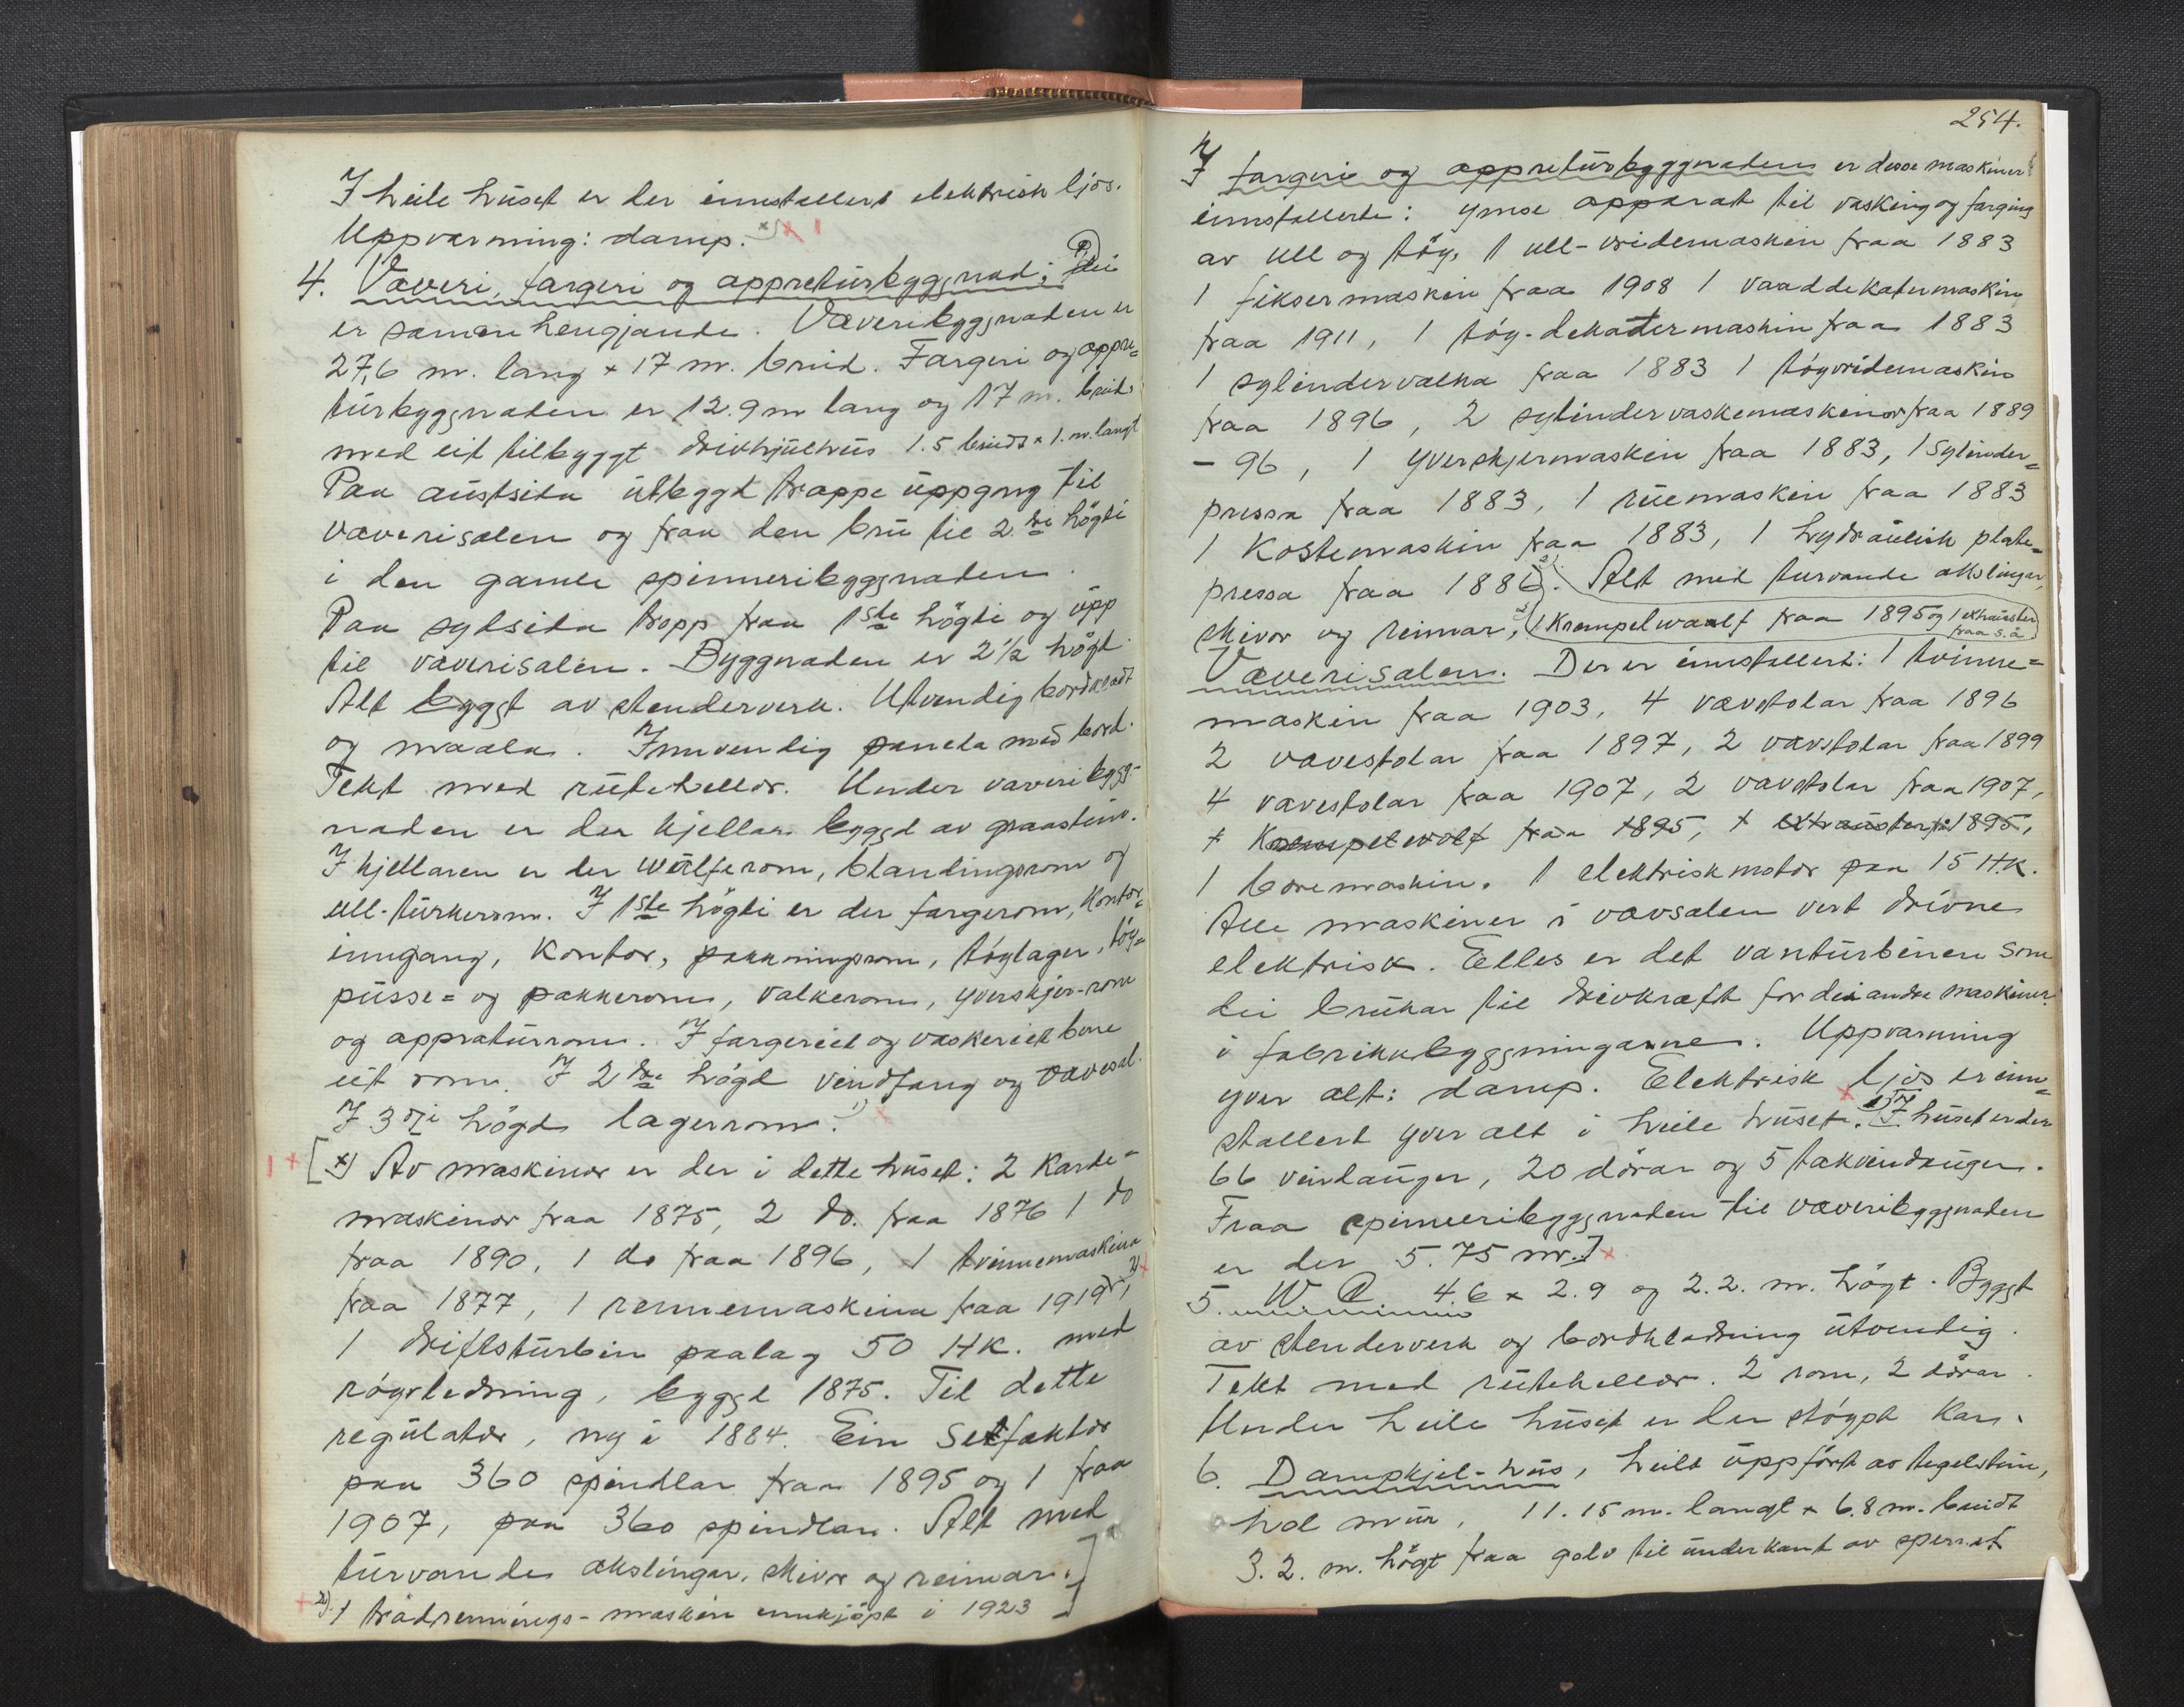 I heile huset er der innstallert elektrisk ljos.
Uppvarming: damp. x)
4. Væveri, fargeri og appreturbyggnad; Dei
er samanhengjande. Væveribyggnaden er
27,6 m. lang x 17 m. breid. Fargeri og appre=
turbyggnaden er 12.9 m lang og 17 m. breid
med eit tilbyggt drivhjulhus 1.5 breidt x 1. m. langt
Paa austsida utbygd trappe uppgang til
væverisalen og fraa den bru til 2dre högdi
i den gamle spinneribyggnaden.
Paa sydsida tropp fraa 1ste högdi og upp
til væverisalen. Byggnaden er 2½ högd
Alt byggt av stenderverk. Utvendig bordklædt
og maala. Innvendig panela med bord.
Tekt med rutehellor. Under væveribygg-
naden er der kjellar bygd av graastein.
I kjellaren er der wülferom, blandingsrom og
ull-turkerom. I 1ste högdi er der fargerom, Kontor=
inngang, Kontor, pakkningsrom, töylager, töy=
pusse= og pakkerom, valkerom, yverskjer-rom
og appraturrom. I fargeriet og vaskeriet bere
eit rom. I 2dre högd vindfang og vævesal.
I 3dji högd lagerrom. 1)
[x) Av maskiner er der i dette huset: 2 Karde=
maskiner fraa 1875, 2 do. fraa 1876 1 do
fraa 1890, 1 do fraa 1896, 1 tvinnemaskina
fraa 1877, 1 rennemaskina fraa 1919, 2)
1 driftsturbin paalag 50 HK. med
röyrledning, byggt 1875. Til dette
regulator, ny i 1884. Ein Selfaktor
paa 360 spindlar fraa 1895 og 1 fraa
1907, paa 360 spindlar. Alt med
turvande akslingar, skivor og reimar.]
2). 1 trådrennings-maskin innkjöpt i 1923
254.
I fargeri og appreturbyggnaden er desse maskiner
innstallerte: ymse apparat til vasking og farging
av ull og töy, 1 ull-vridemaskin fraa 1883
1 fiksermaskin fraa 1908 1 vaaddekatermaskin
fraa 1911, 1 töy-dekatermaskin fraa 1883
1 sylindervalka fraa 1883 1 töyvridemaskin
fraa 1896, 2 sylindervaskemaskinor fraa 1889
- 96, 1 yverskjermaskin fraa 1883, 1 Sylinder=
pressa fraa 1883, 1 ruemaskin fraa 1883
1 Kostemaskin fraa 1883, 1 hydraulisk plate=
pressa fraa 1886. Alt med turvande akslingar,
skivor og reimar, (1 Krempelwolf fraa 1895 og 1 exhauster
fraa s.å.)
Væverisalen. Der er innstallert: 1 tvinne=
maskin fraa 1903, 4 vævstolar fraa 1896
2 vævestolar fraa 1897, 2 vævstolar fraa 1899
4 vævestolar fraa 1907, 2 vævstolar fraa 1907,
1 Krempelwolf fraa 1895, 1 exhauster fr. 1895,
1 boremaskin. 1 elektrisk motor paa 15 HK.
Alle maskiner i vævsalen vert drivne
elektrisk. Elles er det vanturbinen som
dei brukar til drivkraft for dei andre maskiner
i fabrikkbyggningarne. Uppvarming
yver alt: damp. Elektrisk ljos er inn=
stallert yver alt i heile huset. 1) I huset er der
66 vindauger, 20 dörar og 5 takvindauger.
Fraa spinneribyggnaden til væveribyggnaden
er der 5.75 m.]
5. W C 4.6 x 2.9 og 2.2. m. högt. Byggt
av stenderverk og bordklædning utvendig.
Tekt med rutehellor. 2 rom, 2 dörar.
Under heile huset er der stöypt kar.
6. Dampkjel-hus, heilt uppfört av tegelstein,
hol mur, 11.15 m. langt x 6.8 m. breidt
3.2. m. högt fraa golv til underkant av sperret